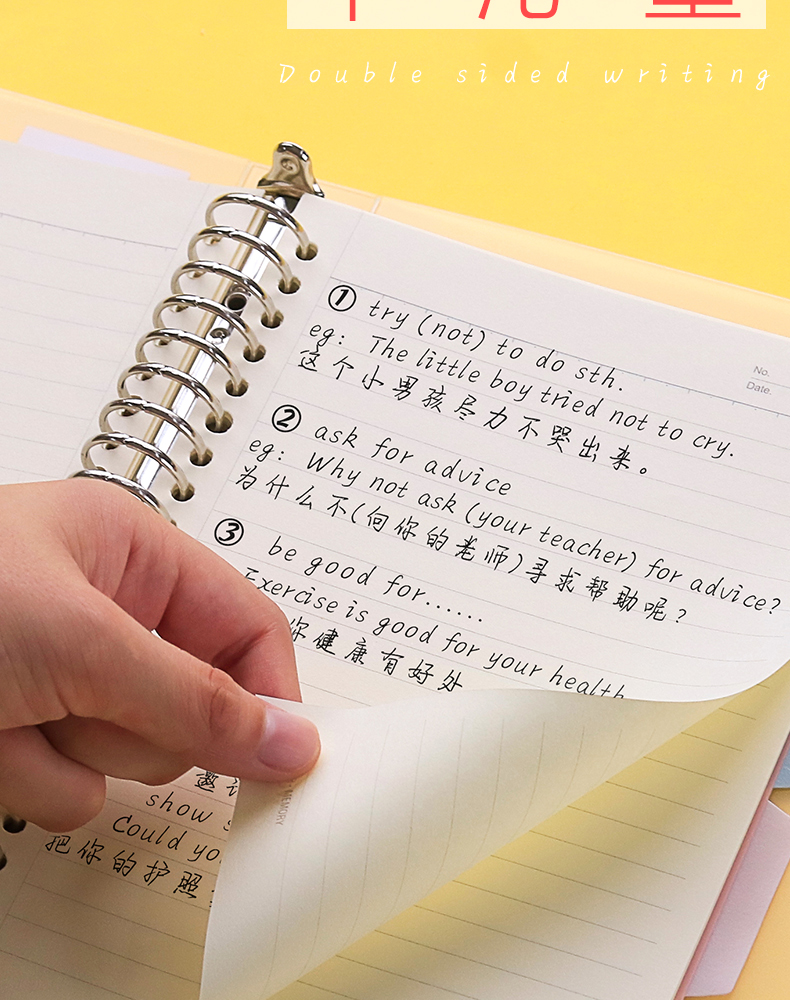 Double sided writing
No.
Date.
① try (not) to do sth.
eg: The little boy tried not to cry.
这个小男孩尽力不哭出来。
② ask for advice
eg: Why not ask (your teacher) for advice?
为什么不(向你的老师)寻求帮助呢?
③ be good for......
Exercise is good for your health
你健康有好处
MEMORY
邀
show
Could
把你的护照